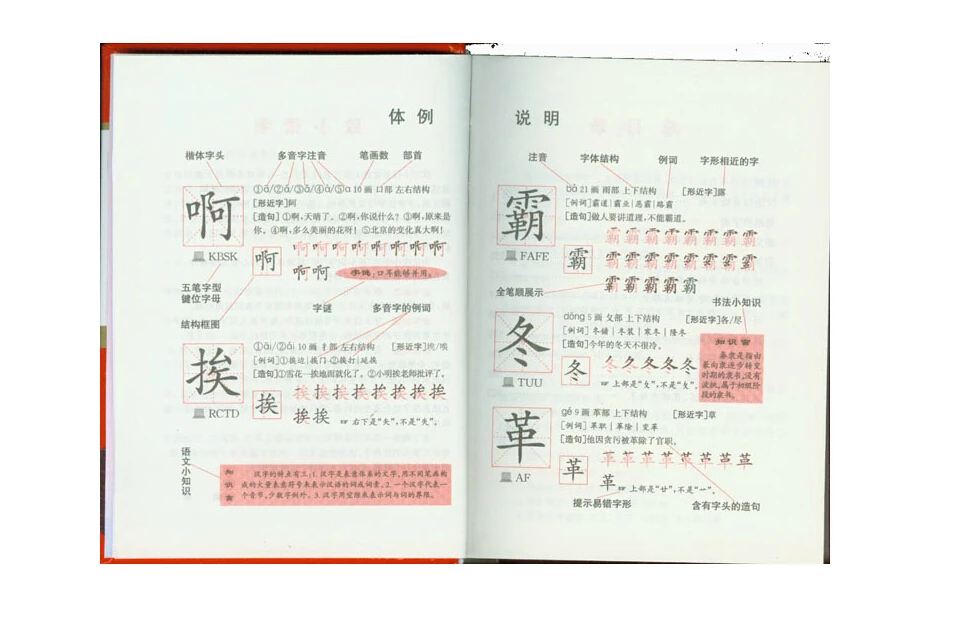 体例
楷体字头 多音字注音 笔画数 部首
啊
①ā/②á/③ǎ/④à/⑤a 10画 口部 左右结构
[形近字]阿
[造句]①啊,天晴了。②啊,你说什么?③啊,原来是
你。④啊,多么美丽的花呀!⑤北京的变化真大啊!
KBSK
啊
啊啊啊啊啊啊啊啊
啊啊
字谜:口耳能够并用。
五笔字型
键位字母
字谜 多音字的例词
结构框图
挨
①āi/②ái 10画 扌部 左右结构 [形近字]埃/唉
[例词]①挨近|挨门 ②挨打|延挨
[造句]①雪花一挨地面就化了。②小明挨老师批评了。
RCTD
挨
挨挨挨挨挨挨挨挨
挨挨
右下是“矢”,不是“失”。
语文小知识
知识窗
汉字的特点有三:1.汉字是表意体系的文字,用不同笔画构
成的大量表意符号来表示汉语的词或词素。2.一个汉字代表一
个音节,少数字例外。3.汉字用空隙来表示词与词的界限。
说明
注音 字体结构 例词 字形相近的字
霸
bà 21画 雨部 上下结构 [形近字]露
[例词]霸道|霸业|恶霸|路霸
[造句]做人要讲道理,不能霸道。
FAFE
霸
霸霸霸霸霸霸霸霸
霸霸霸霸霸霸霸霸
霸霸霸霸霸
全笔顺展示
书法小知识
冬
dōng 5画 夂部 上下结构 [形近字]各/尽
[例词]冬储|冬泳|寒冬|隆冬
[造句]今年的冬天不很冷。
TUU
冬
冬冬冬冬冬
上部是“夂”,不是“攵”。
知识窗
秦隶是指由
篆向隶逐步转变
时期的隶书,没有
波挑,属于初级阶
段的隶书。
革
gé 9画 革部 上下结构 [形近字]草
[例词]革职|革除|变革
[造句]他因贪污被革除了官职。
AF
革
革革革革革革革革
革
上部是“廿”,不是“艹”。
提示易错字形 含有字头的造句